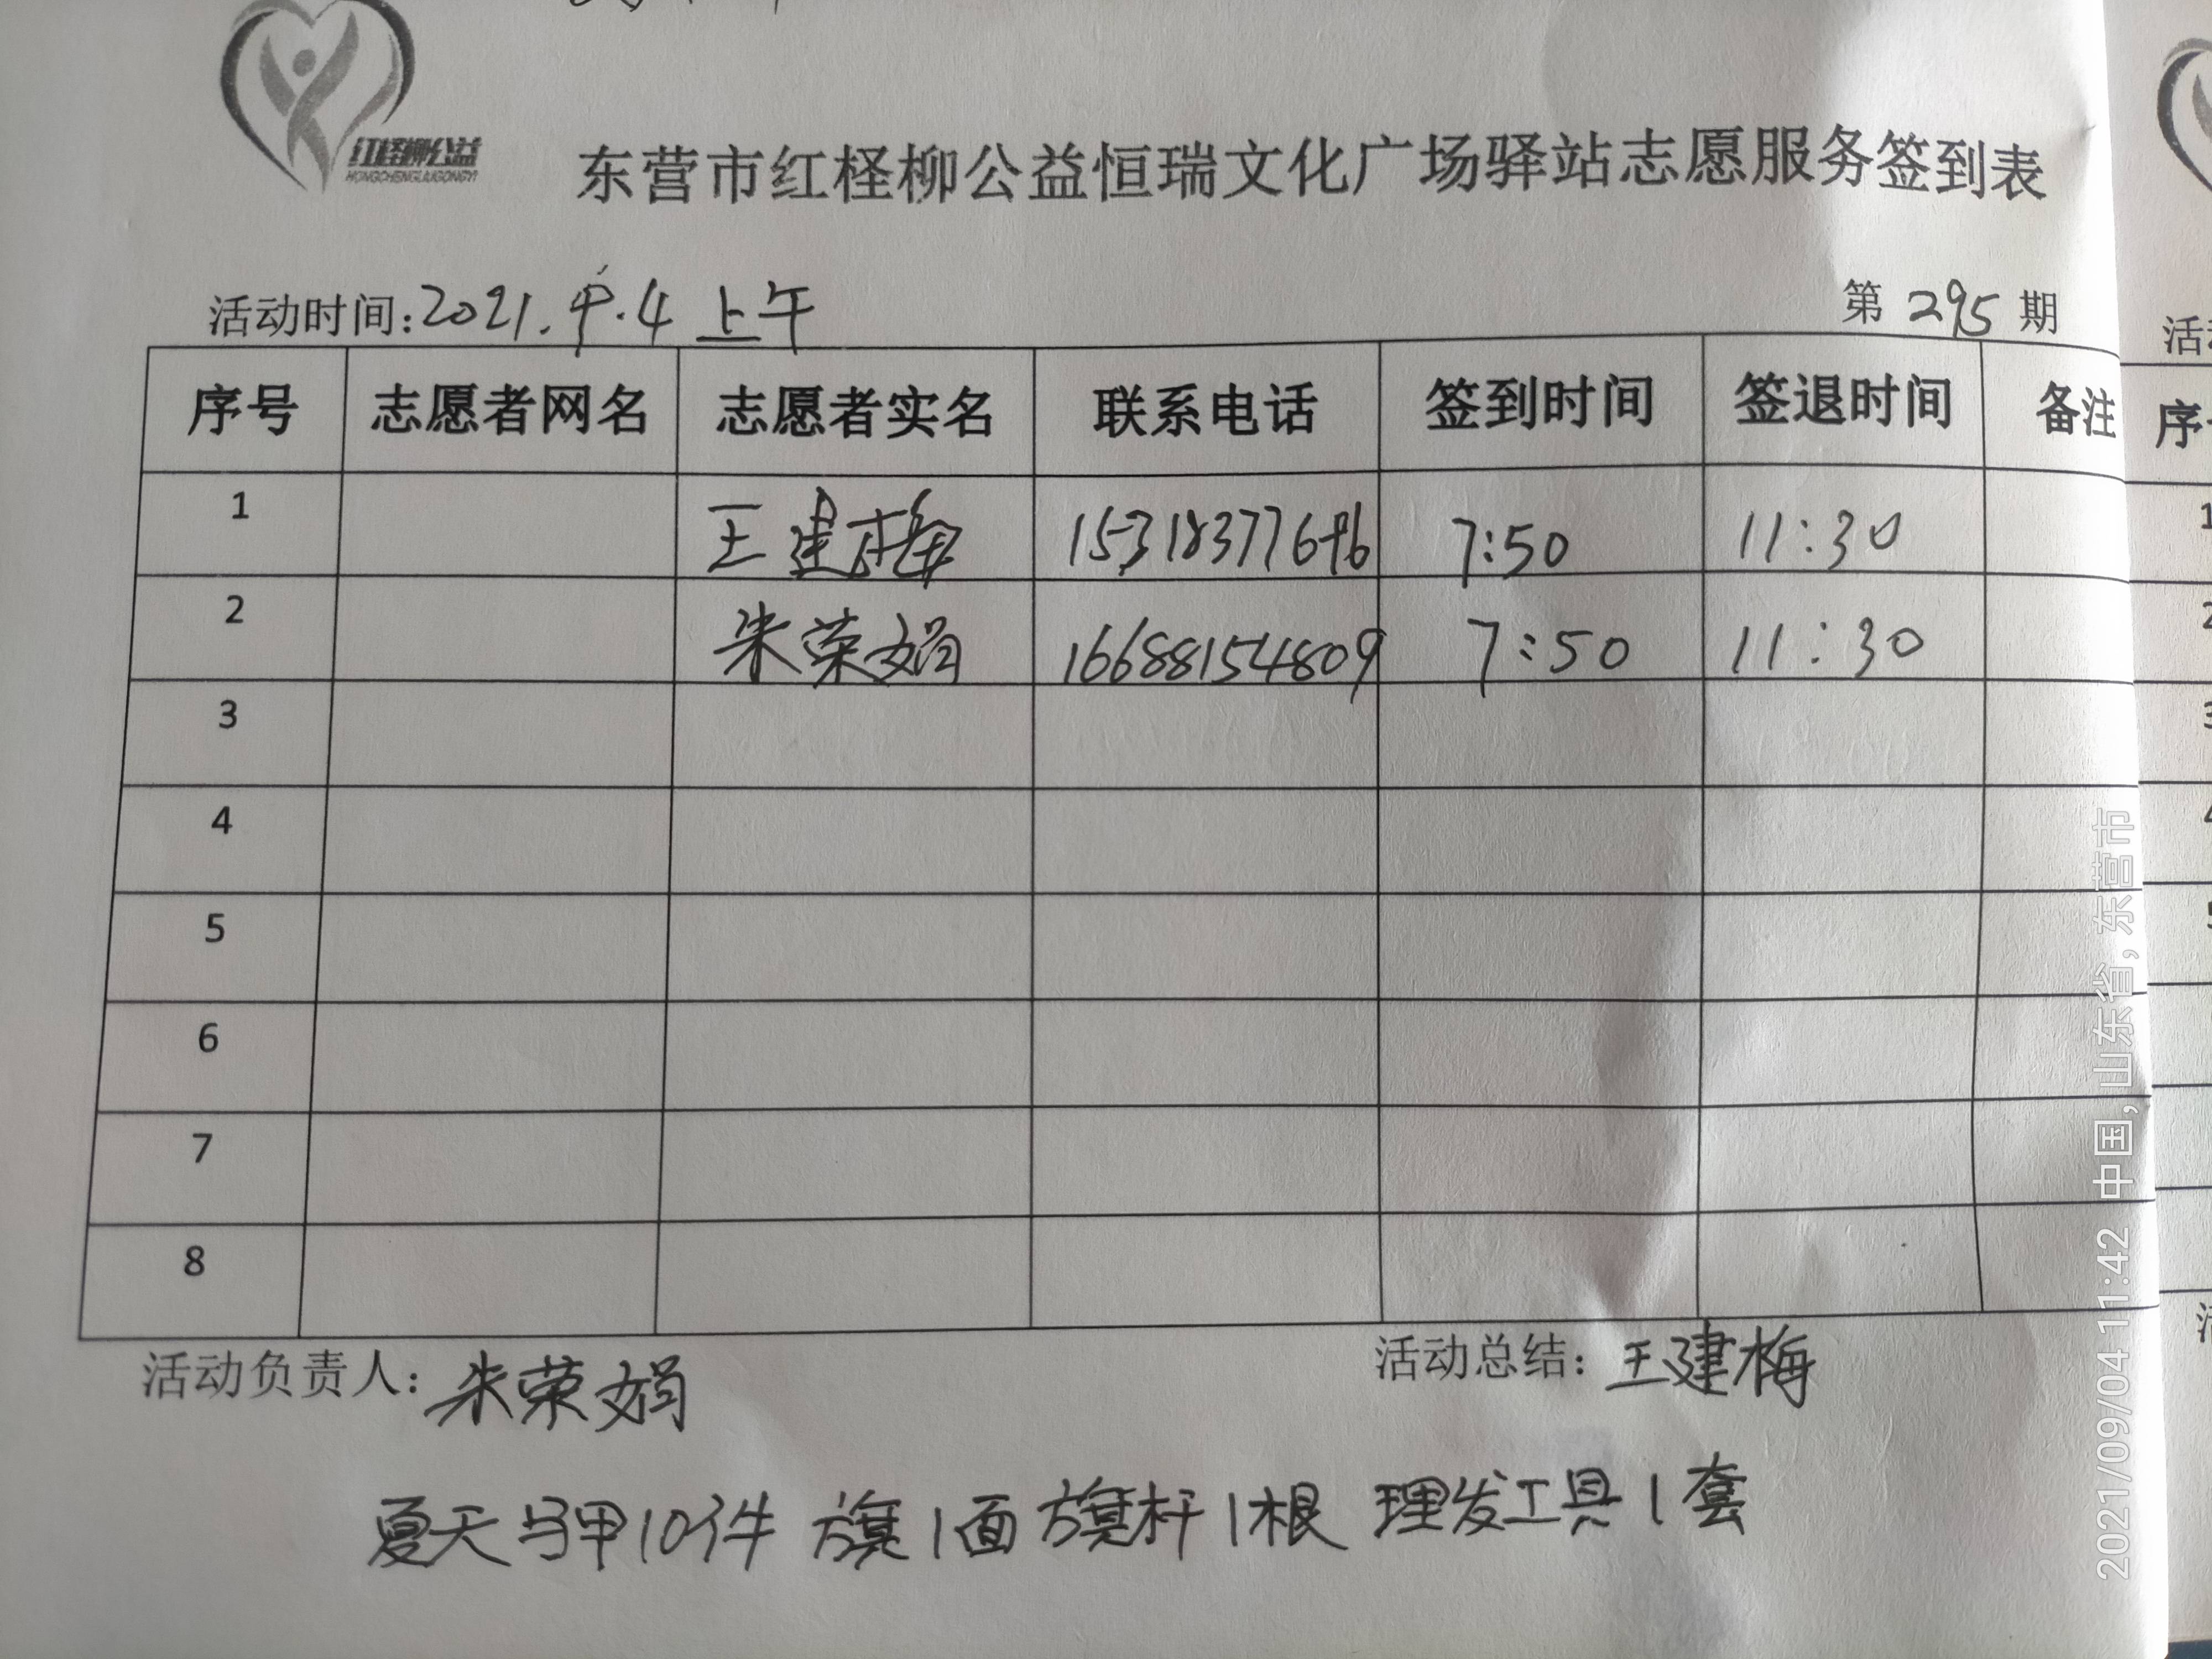 红柽柳公益
HONGCHENGLIUGONGYI
东营市红柽柳公益恒瑞文化广场驿站志愿服务签到表
活动时间:2021.9.4 上午 第295期
序号 志愿者网名 志愿者实名 联系电话 签到时间 签退时间 备注
1 王建梅 15318377696 7:50 11:30
2 朱荣娟 16688154809 7:50 11:30
3
4
5
6
7
8
活动负责人:朱荣娟 活动总结:王建梅
夏天马甲10件 旗1面 旗杆1根 理发工具1套
2021/09/04 11:42 中国,山东省,东营市